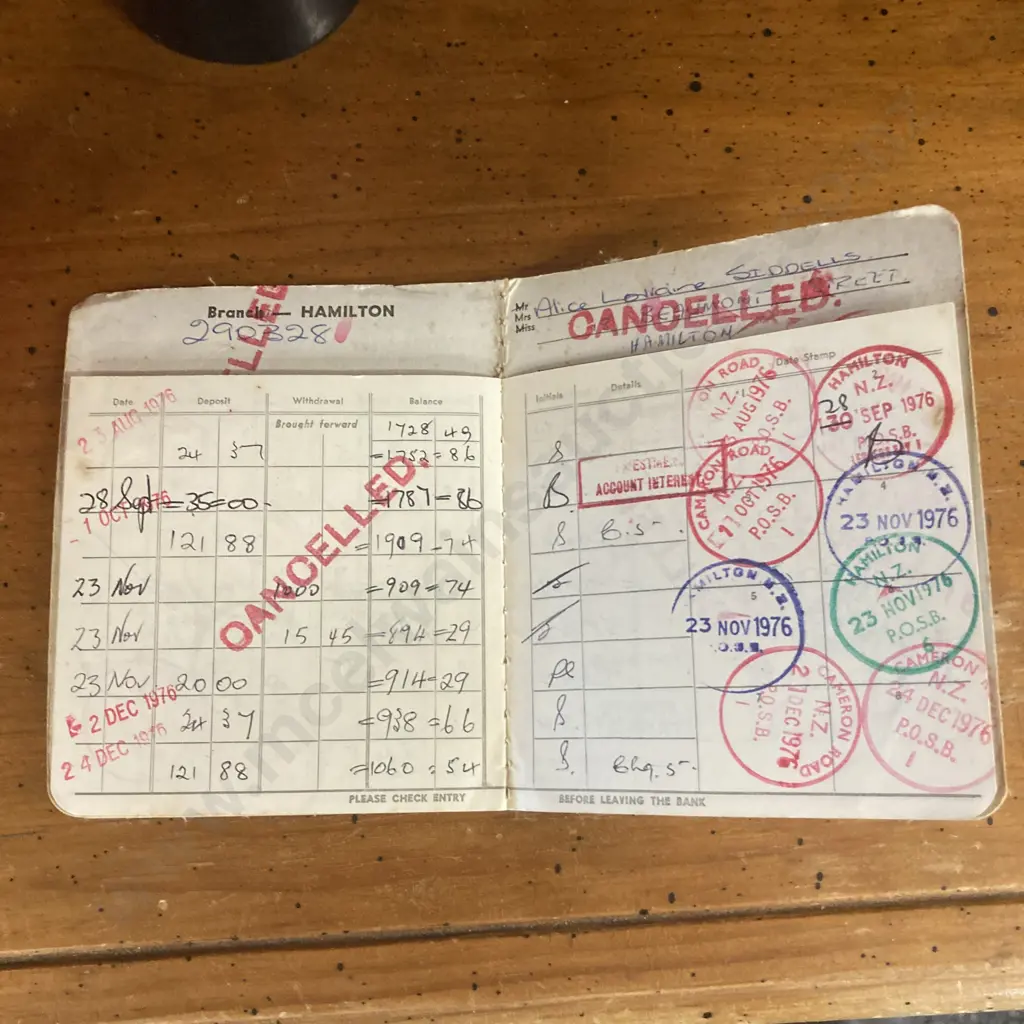 Branch — HAMILTON
290328
CANCELLED.
Mr
Mrs
Miss
Alice Loraine SIDDELLS
BEAUMONT STREET
HAMILTON
CANCELLED.
Date Deposit Withdrawal Balance
Brought forward 1728 49
23 AUG 1976 24 37 =1752=86
28 Sept =35=00- =1787=86
-1 OCT 1976 121 88 =1909-74
23 Nov 1000 =909=74
23 Nov 15 45 =894=29
23 Nov 20 00 =914=29
2 DEC 1976 24 37 =938=66
24 DEC 1976 121 88 =1060=54
CANCELLED.
PLEASE CHECK ENTRY
Initials Details Date Stamp
ACCOUNT INTEREST
B.5-
Chq.5-
ON ROAD N.Z. AUG 1976 P.O.S.B. 1
HAMILTON 2 N.Z. 28 30 SEP 1976 P.O.S.B.
CAMERON ROAD N.Z. 1 OCT 1976 P.O.S.B. 1
HAMILTON N.Z. 4 23 NOV 1976
MILTON N.Z. 5 23 NOV 1976 O.S.B.
HAMILTON N.Z. 23 NOV 1976 P.O.S.B. 6
CAMERON ROAD N.Z. 2 DEC 1976 P.O.S.B. 1
CAMERON N.Z. 24 DEC 1976 P.O.S.B. 1
BEFORE LEAVING THE BANK